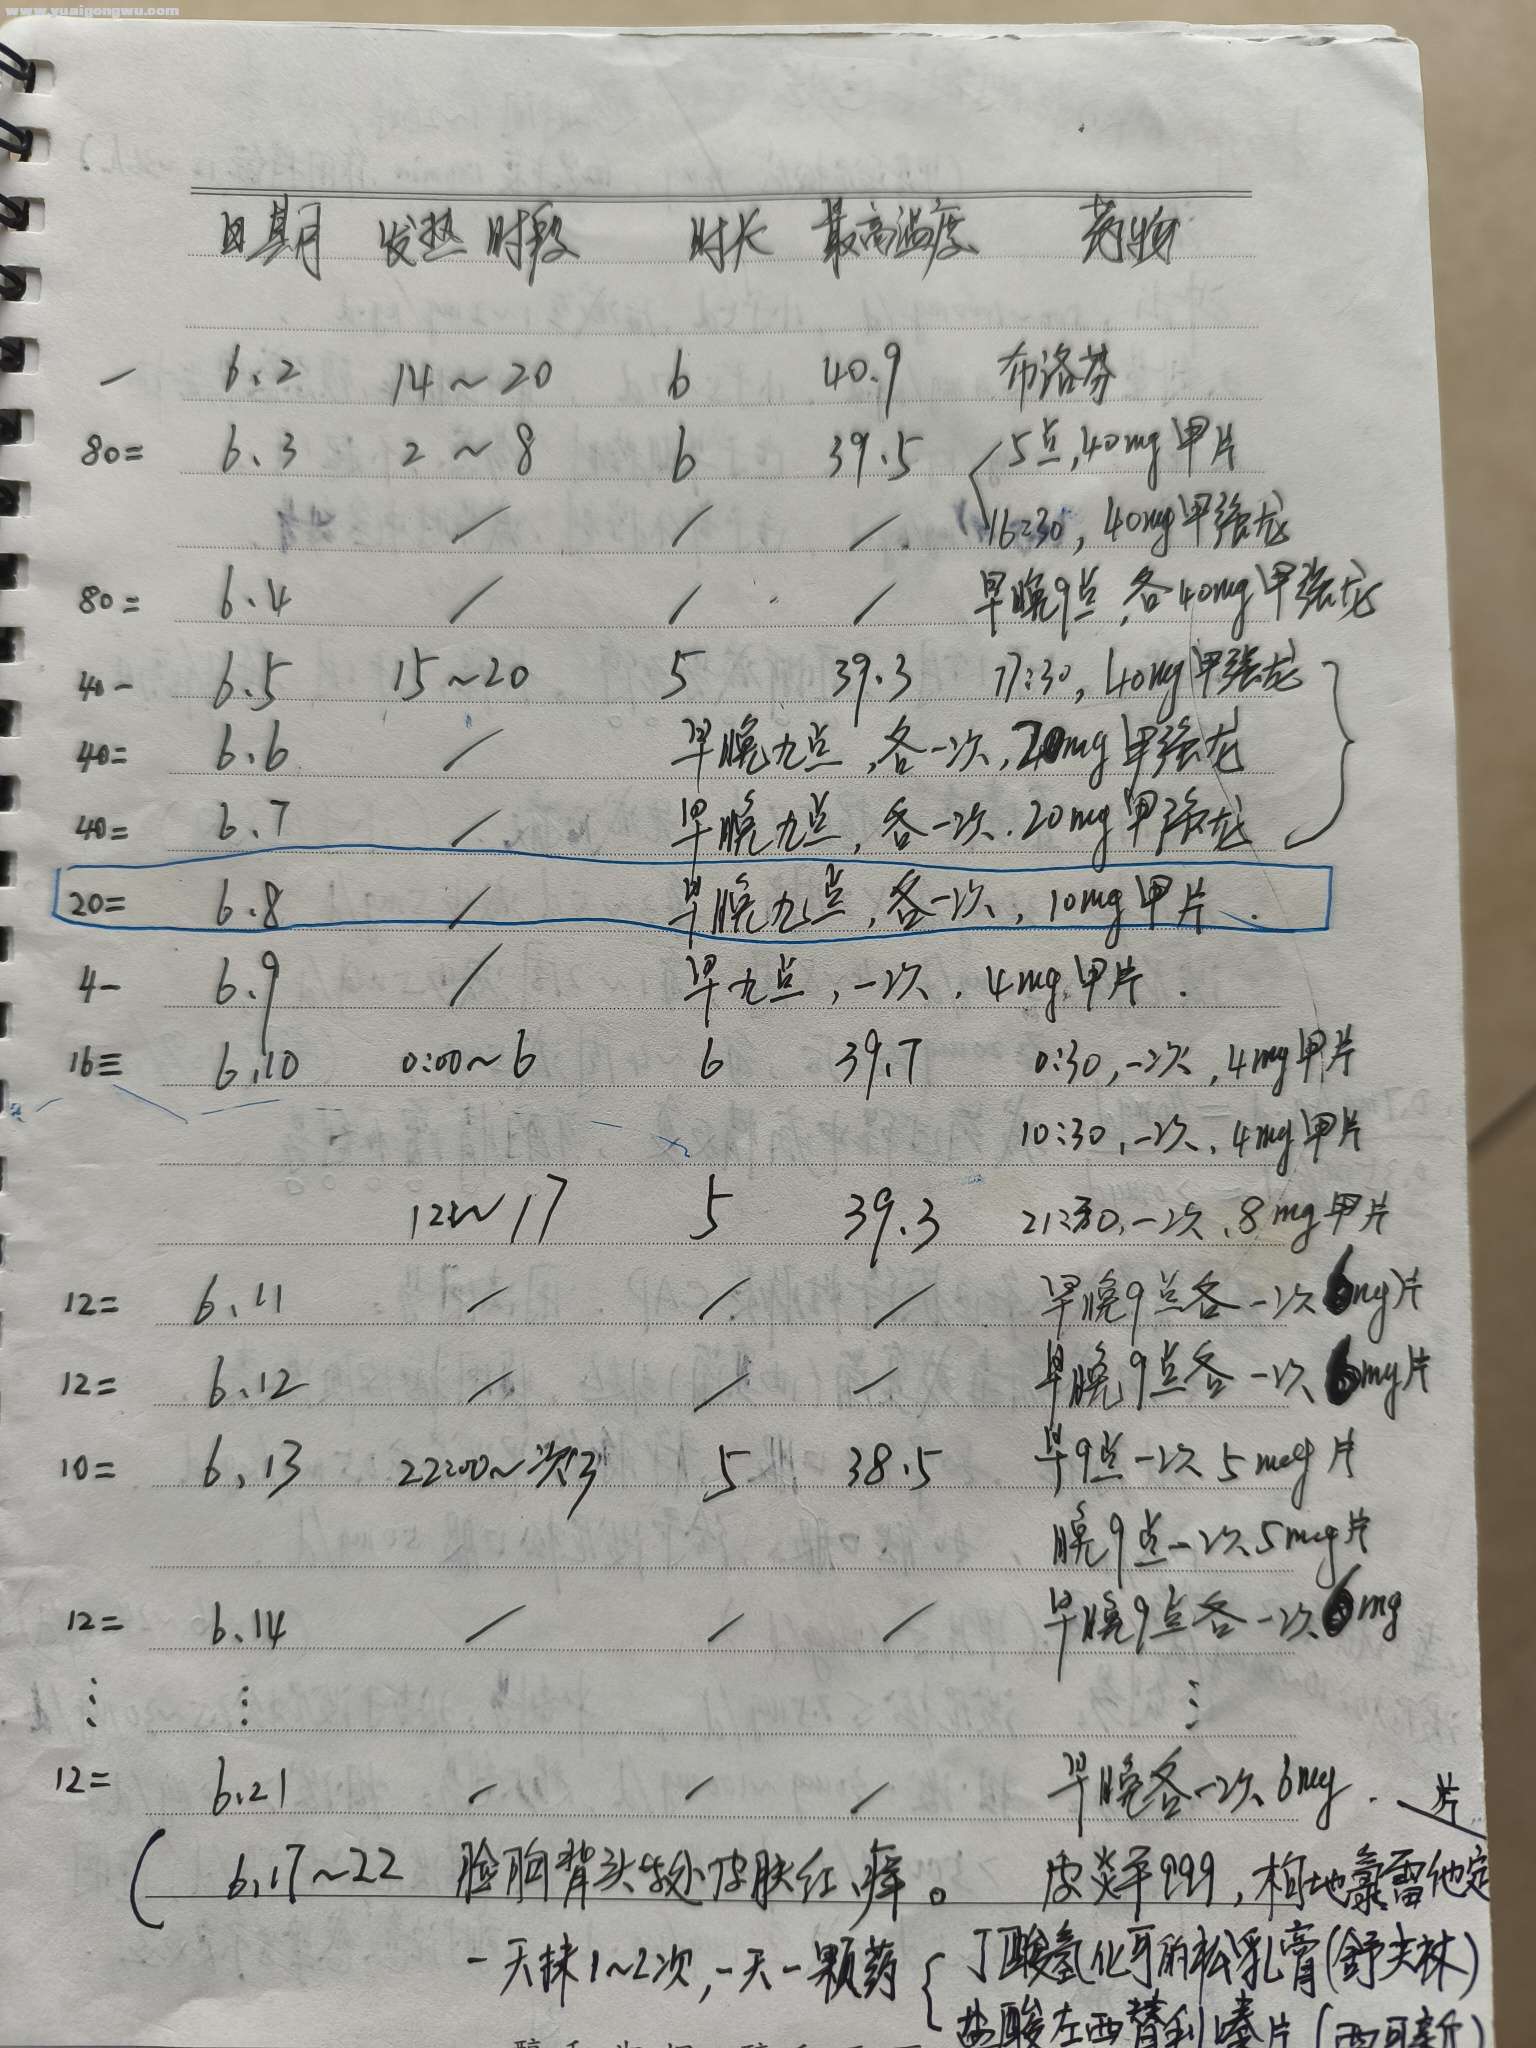 www.yuaigongwu.com
日期 发热时段 时长 最高温度 药物
— 6.2 14~20 6 40.9 布洛芬
80= 6.3 2~8 6 39.5 5点,40mg甲片
/ / / 16:30,40mg甲强龙
80= 6.4 / / / 早晚9点,各40mg甲强龙
40- 6.5 15~20 5 39.3 17:30,40mg甲强龙
40= 6.6 / 早晚九点,各一次,20mg甲强龙
40= 6.7 / 早晚九点,各一次.20mg甲强龙
20= 6.8 / 早晚九点,各一次,10mg甲片.
4- 6.9 / 早九点,一次,4mg甲片.
16≡ 6.10 0:00~6 6 39.7 0:30,一次,4mg甲片
10:30,一次,4mg甲片
12~17 5 39.3 21:30,一次,8mg甲片
12= 6.11 / / / 早晚9点各一次6mg片
12= 6.12 / / / 早晚9点各一次6mg片
10= 6.13 22:00~次3 5 38.5 早9点一次5mg片
晚9点一次5mg片
12= 6.14 / / / 早晚9点各一次6mg
⋮ ⋮ ⋮
12= 6.21 / / / 早晚各一次6mg.片
(6.17~22 脸胸背头皮肤红,痒。 皮炎平999,枸地氯雷他定
一天抹1~2次,一天一颗药{丁酸氢化可的松乳膏(舒夫林)
盐酸左西替利嗪片(西可新)